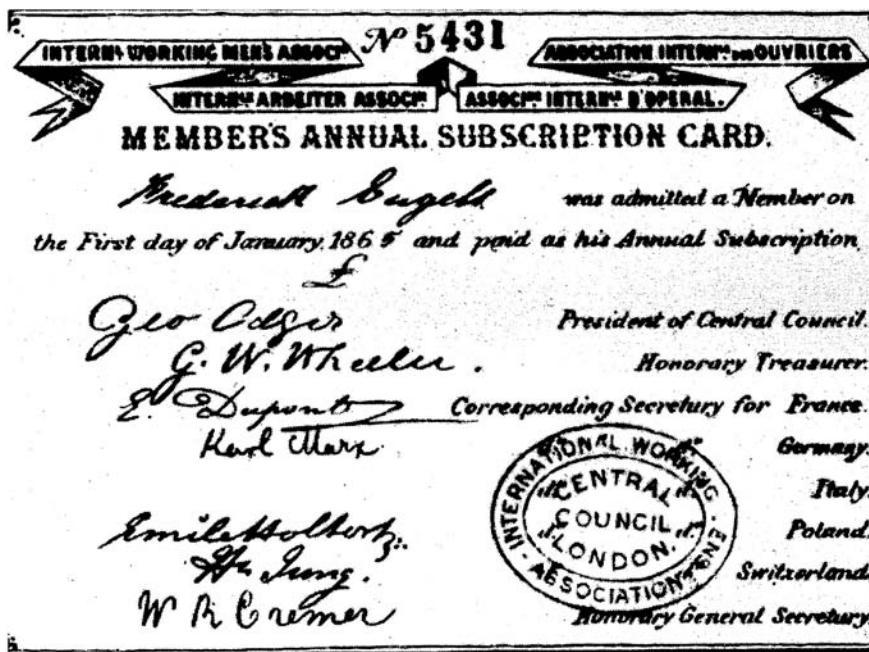 Nº 5431
INTERNL WORKING MEN'S ASSOCTN
ASSOCIATION INTERNLE DES OUVRIERS
INTERNLE ARBEITER ASSOCN.
ASSOCNE INTERNLE D'OPERAI.
MEMBER'S ANNUAL SUBSCRIPTION CARD.
Frederick Engels was admitted a Member on
the First day of January, 1865 and paid as his Annual Subscription
£
Geo Odger President of Central Council.
G. W. Wheeler. Honorary Treasurer.
E. Dupont Corresponding Secretary for France.
Karl Marx Germany.
Italy.
Emile Holtorp Poland.
Hn Jung. Switzerland.
W R Cremer Honorary General Secretary.
INTERNATIONAL WORKING MENS ASSOCIATION
CENTRAL
COUNCIL
LONDON.